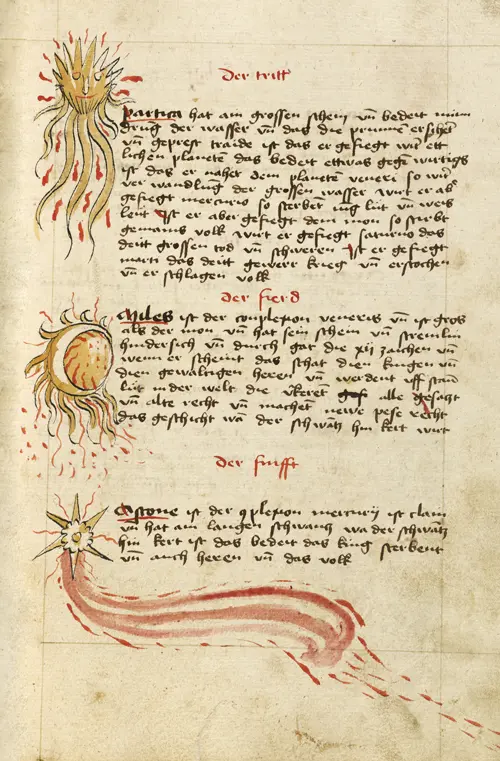 der tritt
Partica hat am grossen schein vñ bedeit minn
drūg der wasser vñ das die prunnen
vñ geprest traide ist das er gefiegt wirt ett
lichen planetē das bedeit ettwas gegē wirtigs
ist das er nahet dem planetē veneri so wirt
ver wandlūg der grossen wasser wirt er aber
gefiegt mercurio so sterben iūg lüt vñ weis
leut Ist er aber gefiegt dem mon so stirbt
gemains volk wirt er gefiegt saturno das
deitt grossen tod vñ schweren Ist er gefiegt
marti das deitt gewerr krieg vñ erstochen
vñ er schlagen volk
der fierd
Miles ist der conplexion veneris vñ ist gros
als der mon vñ hat sein schein vñ streimlin
hindersich vñ durch gat die xii zaichen vñ
wenn er scheint das schat dien kingen vñ
dien gewaltigen heren vñ werdent uff stan
lüt in der welt die alle gesatzt
vñ alte recht vñ machet newe pese recht
das geschicht wa der schwātz hin kert wirt
der finfft
Astone ist der 9plexion mercurij ist clain
vñ hat am langen schwantz wa der schwātz
hin kert ist das bedeit das king sterbent
vñ auch heren vñ das volk